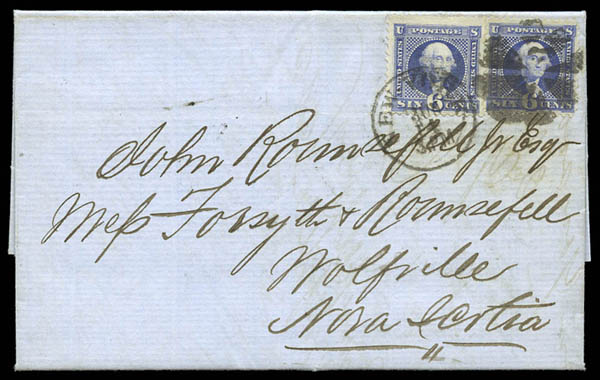 U POSTAGE S
UNITED STATES
SIX 6 CENTS
U POSTAGE S
UNITED STATES
SIX 6 CENTS
John Rounsefell Jr Esq
Mess Forsyth & Rounsefell
Wolfville
Nova Scotia
"